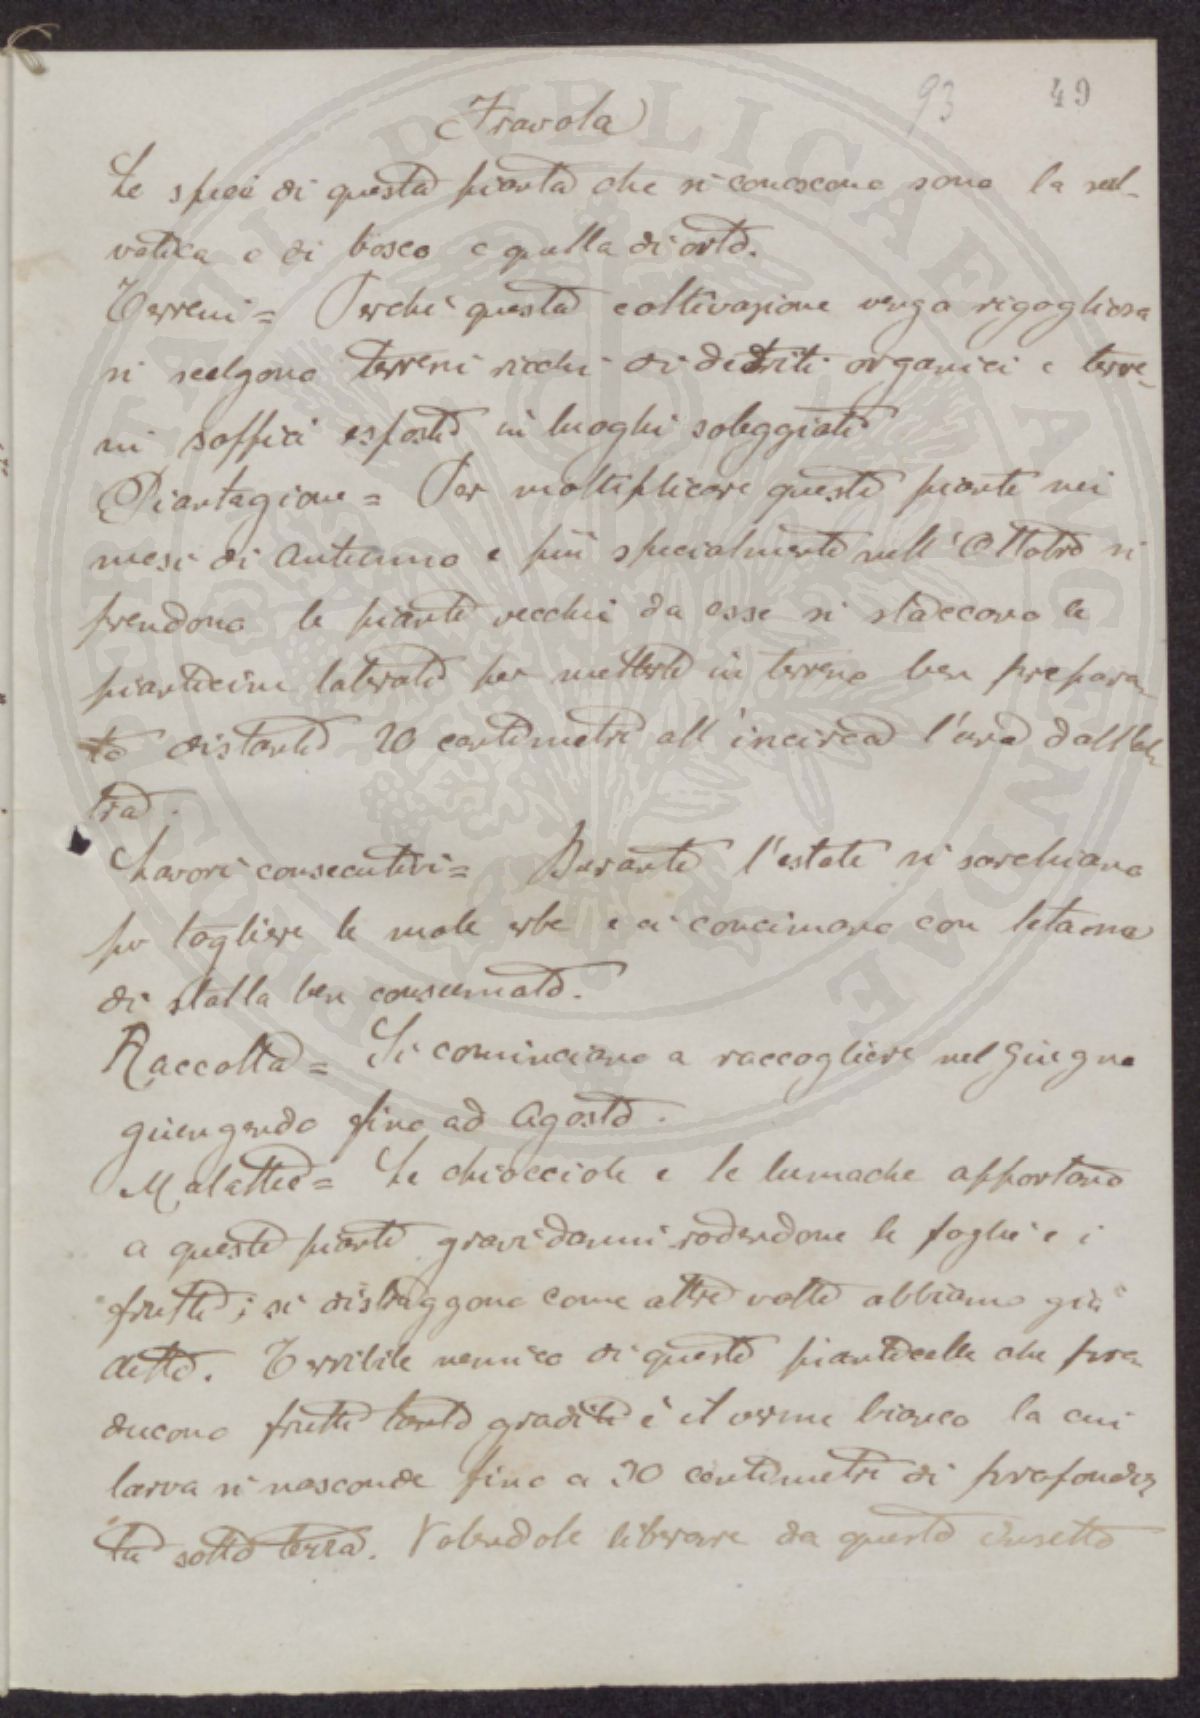 93 49
Fravola
Le speci di questa pianta che si conoscono sono la sel-
vatica e di bosco e quella di orto.
Terreni = Perchè questa coltivazione venga rigogliosa
si scelgono terreni ricchi di detriti organici e terre-
ni soffici esposti in luoghi soleggiati
Piantagione = Per moltiplicare queste piante nei
mesi di autunno e più specialmente nell'Ottobre si
prendono le piante vecchie da esse si staccano le
pianticine laterali per metterle in terreno ben prepara-
to distanti 20 centimetri all'incirca l'una dall'al-
tra.
Lavori consecutivi = Durante l'estate si sarchiano
per togliere le male erbe e si concimano con letame
di stalla ben consumato.
Raccolta = Si cominciano a raccogliere nel Giugno
giungendo fino ad Agosto.
Malattie = Le chiocciole e le lumache apportano
a queste piante gravi danni rodendone le foglie e i
frutti; si distruggono come altre volte abbiamo già
detto. Terribile nemico di queste pianticelle che pro-
ducono frutti tanto graditi è il verme bianco la cui
larva si nasconde fino a 30 centimetri di profondi-
tà sotto terra. Volendole liberare da questo insetto
PUBLICAE ANGELO MAI